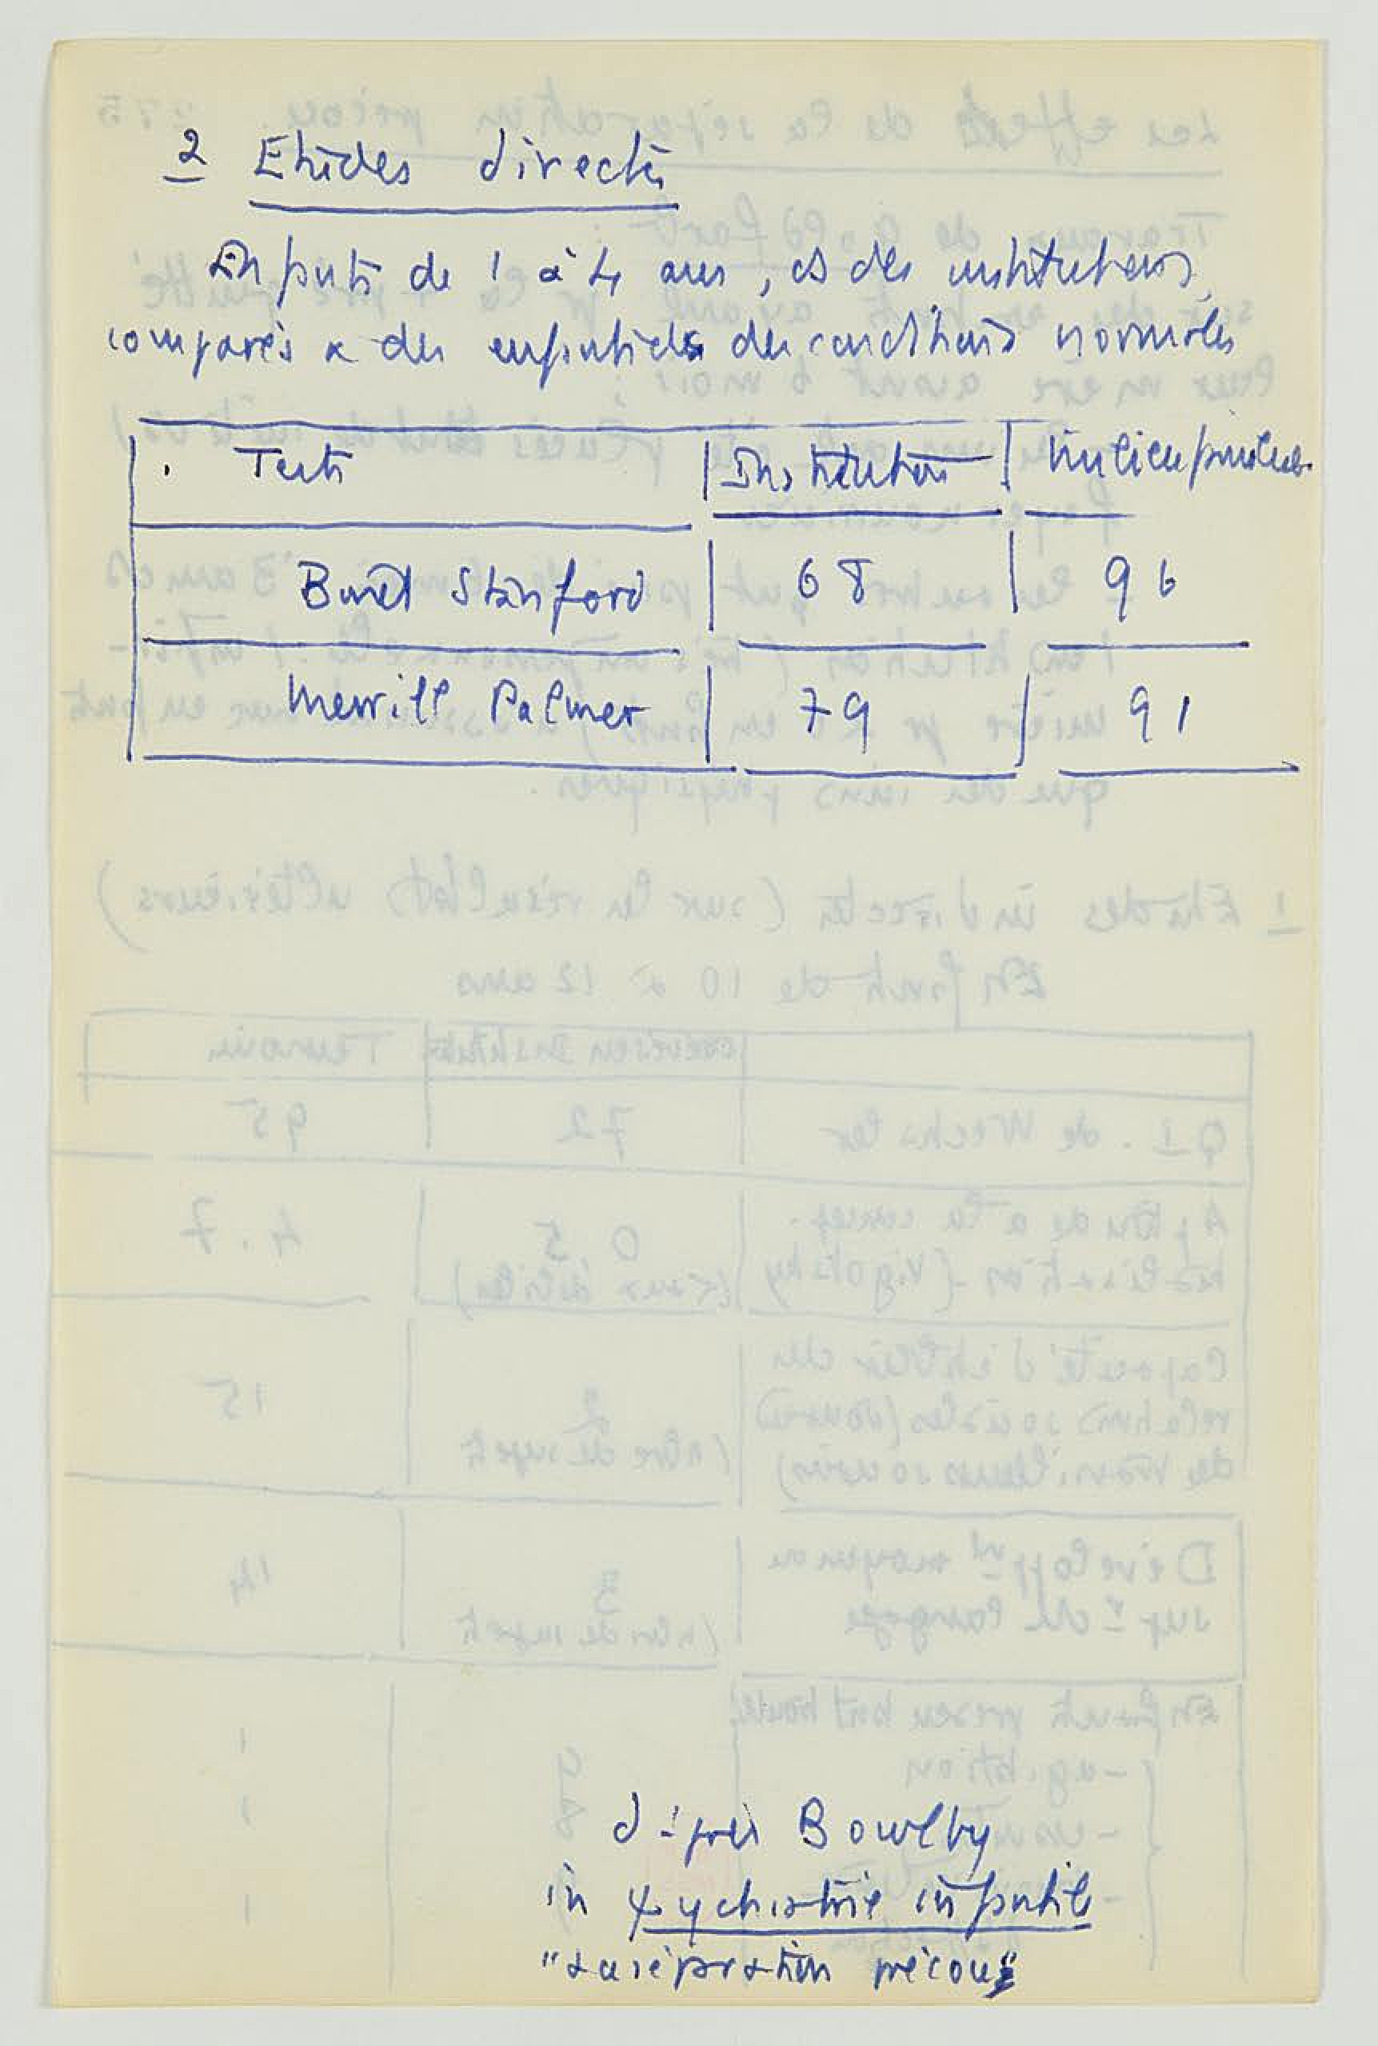 2 Etudes directes
Enfants de 1 à 4 ans, ds des institutions,
comparés à des enfants ds des conditions normales
Tests | Institution | Milieu familial
Binet Stanford | 68 | 96
Merrill Palmer | 79 | 91
d'après Bowlby
in Psychiatrie infantile
"La séparation précoce"